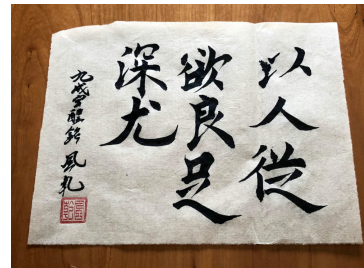 以人從
欲良足
深尤
九成宮醴銘 風乾